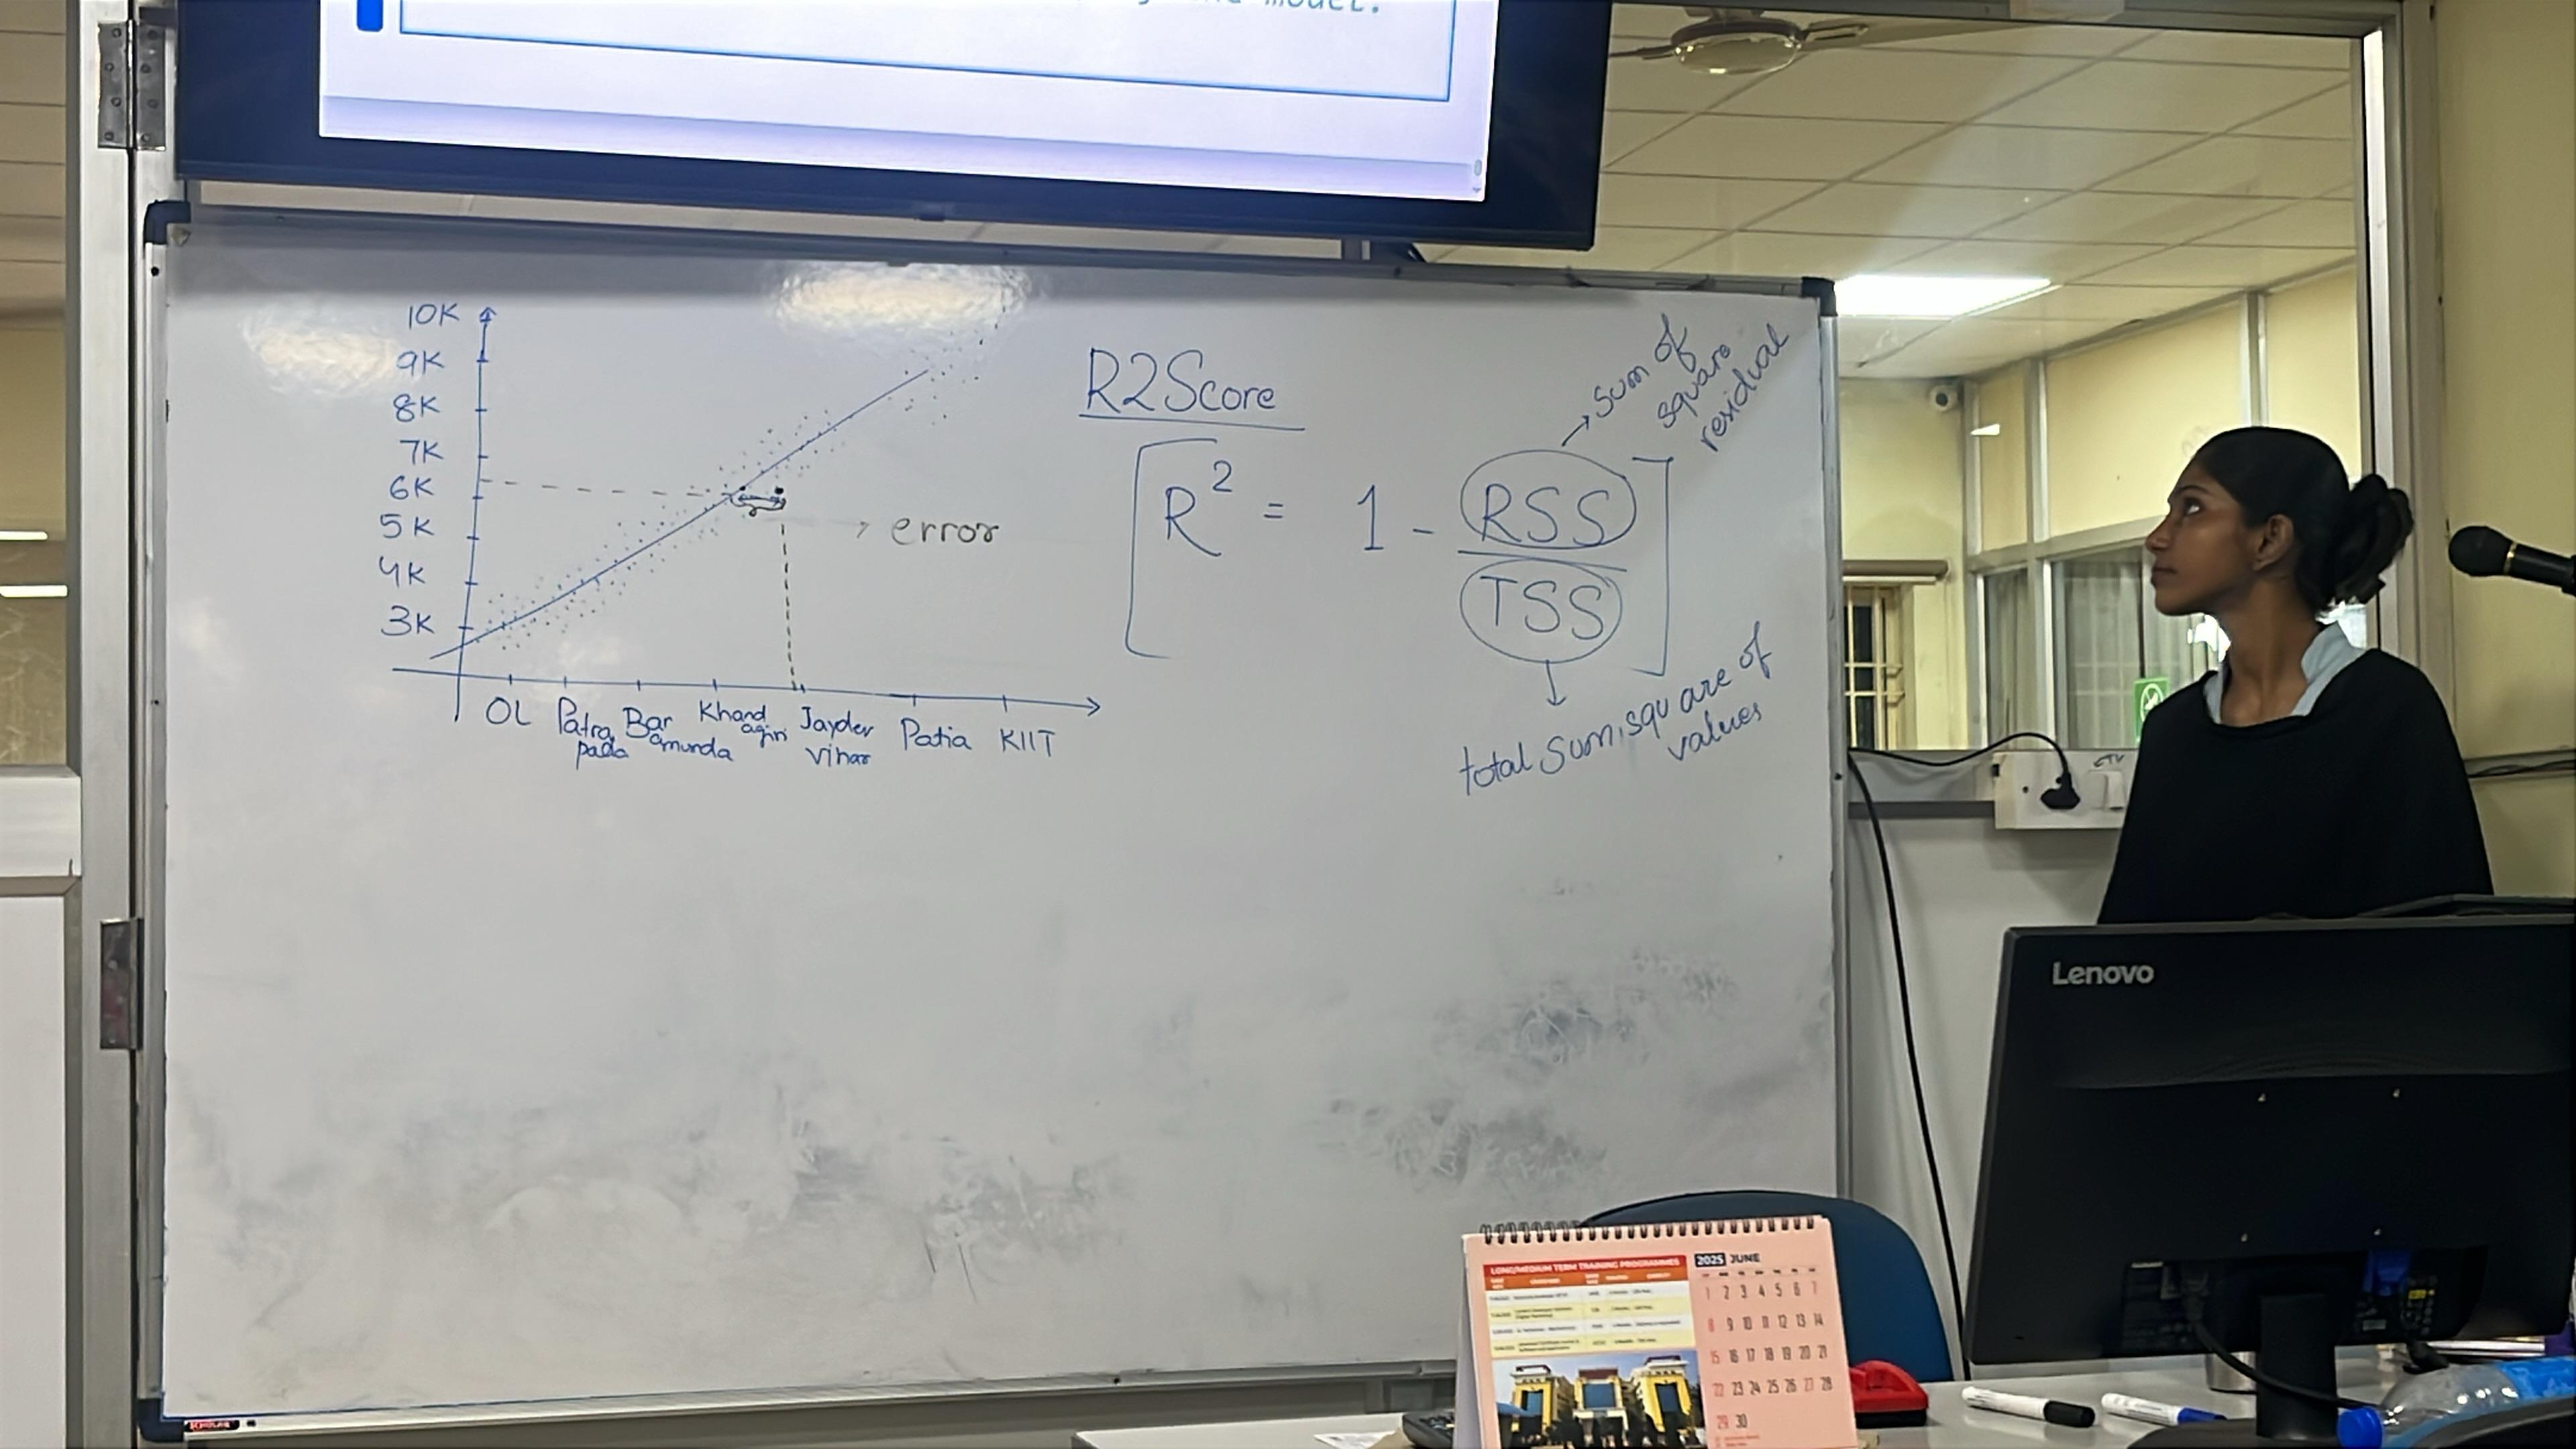 model.
10K
9K
8K
7K
6K
5K
4K
3K
error
OL
Patra
pada
Bar
amunda
Khand
agiri
Jaydev
Vihar
Patia
KIIT
R2Score
R² = 1 - RSS
TSS
Sum of
square
residual
total Sum, square of
values
Lenovo
LONG/MEDIUM TERM TRAINING PROGRAMMES
2025 JUNE
1 2 3 4 5 6 7
8 9 10 11 12 13 14
15 16 17 18 19 20 21
22 23 24 25 26 27 28
29 30